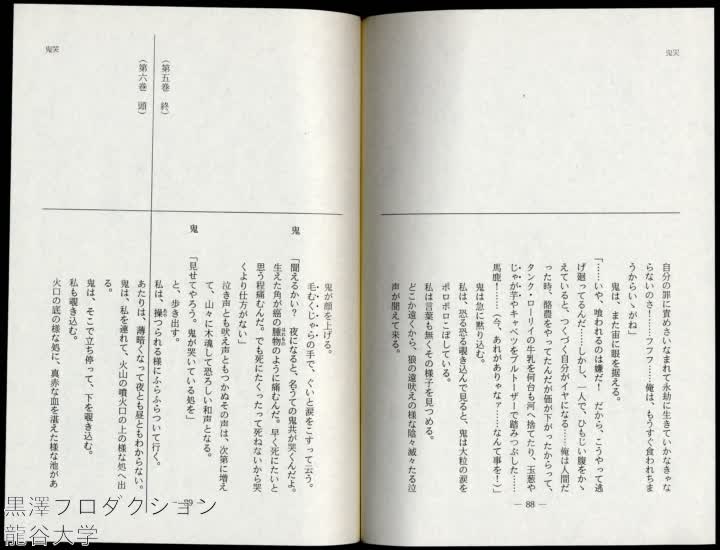 鬼哭
自分の罪に責めさいなまれて永劫に生きていかなきゃな
らないのさ！……フフフ……俺は、もうすぐ食われちま
うからいゝがね」
鬼は、また宙に眼を据える。
「……いや、喰われるのは嫌だ！　だから、こうやって逃
げ廻ってるんだ……しかし、一人で、ひもじい腹をかゝ
えていると、つくづく自分がイヤになる……俺は人間だ
った時、酪農をやってたんだが価が下がったからって、
タンク・ローリイの牛乳を何台も河へ捨てたり、玉葱や
じゃが芋やキャベツをブルトーザーで踏みつぶした……
馬鹿！……（今、あれがありゃなァ……なんて事を！）」
鬼は急に黙り込む。
私は、恐る恐る覗き込んで見ると、鬼は大粒の涙を
ポロポロこぼしている。
私は言葉も無くその様子を見つめる。
どこか遠くから、狼の遠吠えの様な陰々滅々たる泣
声が聞えて来る。
― 88 ―
鬼哭
鬼が顔を上げる。
毛むくじゃらの手で、ぐいと涙をこすって云う。
鬼　「聞えるかい？　夜になると、名うての鬼共が哭くんだよ。
生えた角が癌の腫物のように痛むんだ。早く死にたいと
はれもの
思う程痛むんだ。でも死にたくったって死ねないから哭
くより仕方がない」
泣き声とも吠え声ともつかぬその声は、次第に増え
て、山々に木魂して恐ろしい和声となる。
鬼　「見せてやろう。鬼が哭いている処を」
と、歩き出す。
私は、操つられる様にふらふらついて行く。
（第五巻　終）
（第六巻　頭）
あたりは、薄暗くなって夜とも昼ともわからない。
鬼は、私を連れて、火山の噴火口の上の様な処へ出
る。
鬼は、そこで立ち停って、下を覗き込む。
私も覗き込む。
火口の底の様な処に、真赤な血を湛えた様な池があ
― 89 ―
黒澤プロダクション
龍谷大学